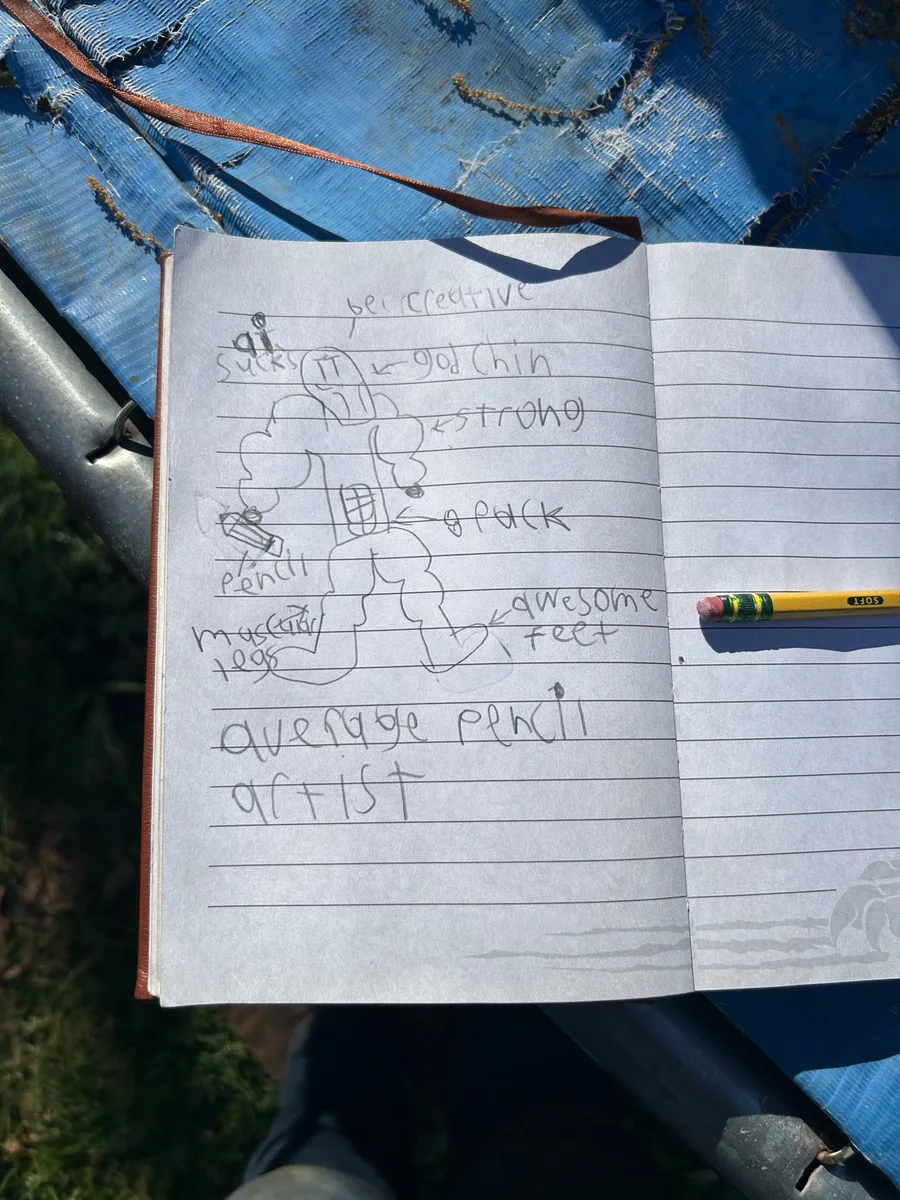 creative
ai
sucks
god chin
strong
8 pack
pencil
awesome
feet
legs
average pencil
artist
SOFT